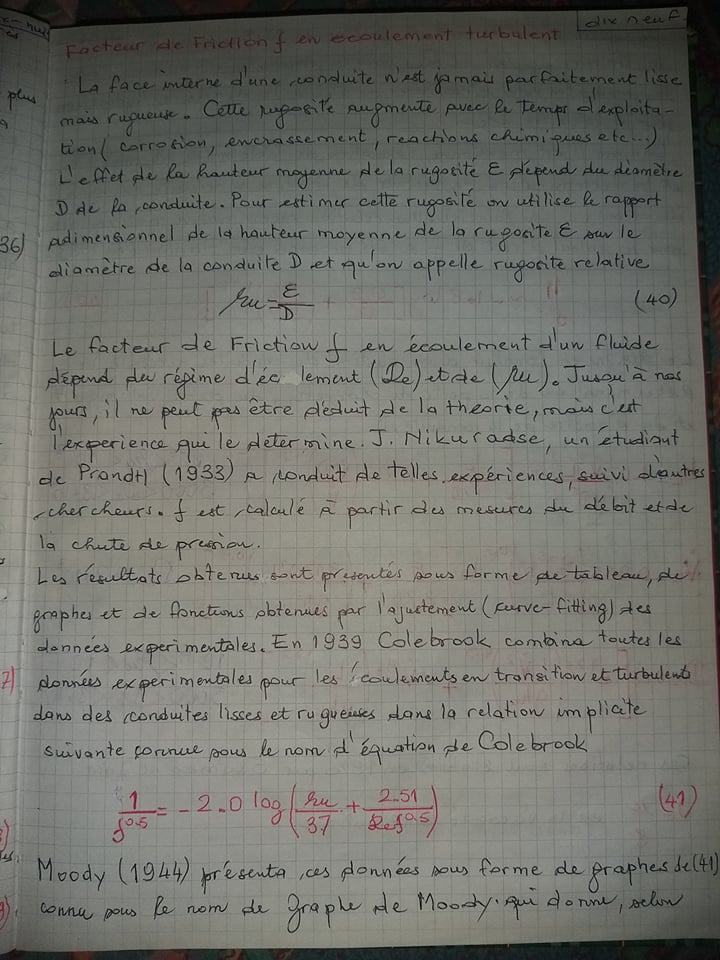 dix neuf
Facteur de Friction f en ecoulement turbulent
La face interne d'une conduite n'est jamais parfaitement lisse
mais rugueuse. Cette rugosité augmente avec le temps d'exploita-
tion (corrosion, encrassement, reactions chimiques etc...)
L'effet de la hauteur moyenne de la rugosité ε dépend du diamètre
D de la conduite. Pour estimer cette rugosité on utilise le rapport
adimensionnel de la hauteur moyenne de la rugosité ε sur le
diamètre de la conduite D et qu'on appelle rugosite relative
ru = ε/D (40)
Le facteur de Friction f en écoulement d'un fluide
dépend du régime d'éc lement (Re) et de (ru). Jusqu'à nos
jours, il ne peut pas être déduit de la theorie, mais c'est
l'experience qui le determine. J. Nikuradse, un étudiant
de Prandtl (1933) a conduit de telles expériences, suivi d'autres
chercheurs. f est calculé à partir des mesures du débit et de
la chute de pression.
Les résultats obtenus sont presentés sous forme de tableau, de
graphes et de fonctions obtenues par l'ajustement (curve-fitting) des
données experimentales. En 1939 Colebrook combina toutes les
données experimentales pour les écoulements en transition et turbulents
dans des conduites lisses et rugueuses dans la relation implicite
suivante connue sous le nom d'équation de Colebrook
1/f^0.5 = -2.0 log(ru/37 + 2.51/Re f^0.5) (41)
Moody (1944) présenta ces données sous forme de graphes de (41)
connu sous le nom de Graphe de Moody. qui donne, selon
plus
36)
7)